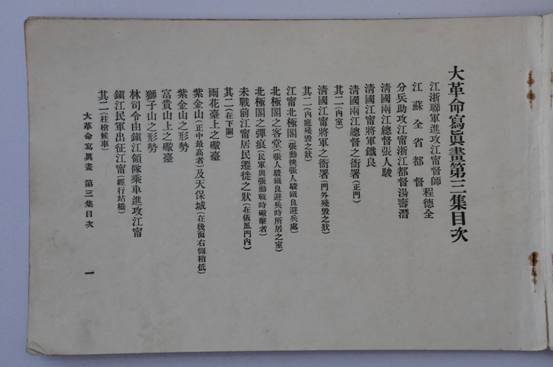 大革命寫眞畫第三集目次
江浙聯軍進攻江甯督師
江蘇全省都督 程德全
分兵助攻江甯浙江都督湯壽潛
清國兩江總督張人駿
清國江甯將軍鐵良
清國兩江總督之衙署(正門)
其二(內室)
清國江甯將軍之衙署(門外殘毀之狀)
其二(內庭殘毀之狀)
江甯北極閣(張勳張人駿鐵良避兵處)
北極閣之客堂(張人駿鐵良避兵時所居之室)
北極閣之彈痕(民軍與張勳戰時礮擊者)
未戰前江甯居民遷徙之狀(在儀鳳門內)
其二(在下關)
雨花臺上之礮臺
紫金山(正中最高者)及天保城(在後面右側稍低)
紫金山之形勢
富貴山上之礮臺
獅子山之形勢
林司令由鎭江領隊乘車進攻江甯
鎭江民軍出征江甯(經行站橋)
其二(荷槍候車)
大革命寫眞畫 第三集目次
一